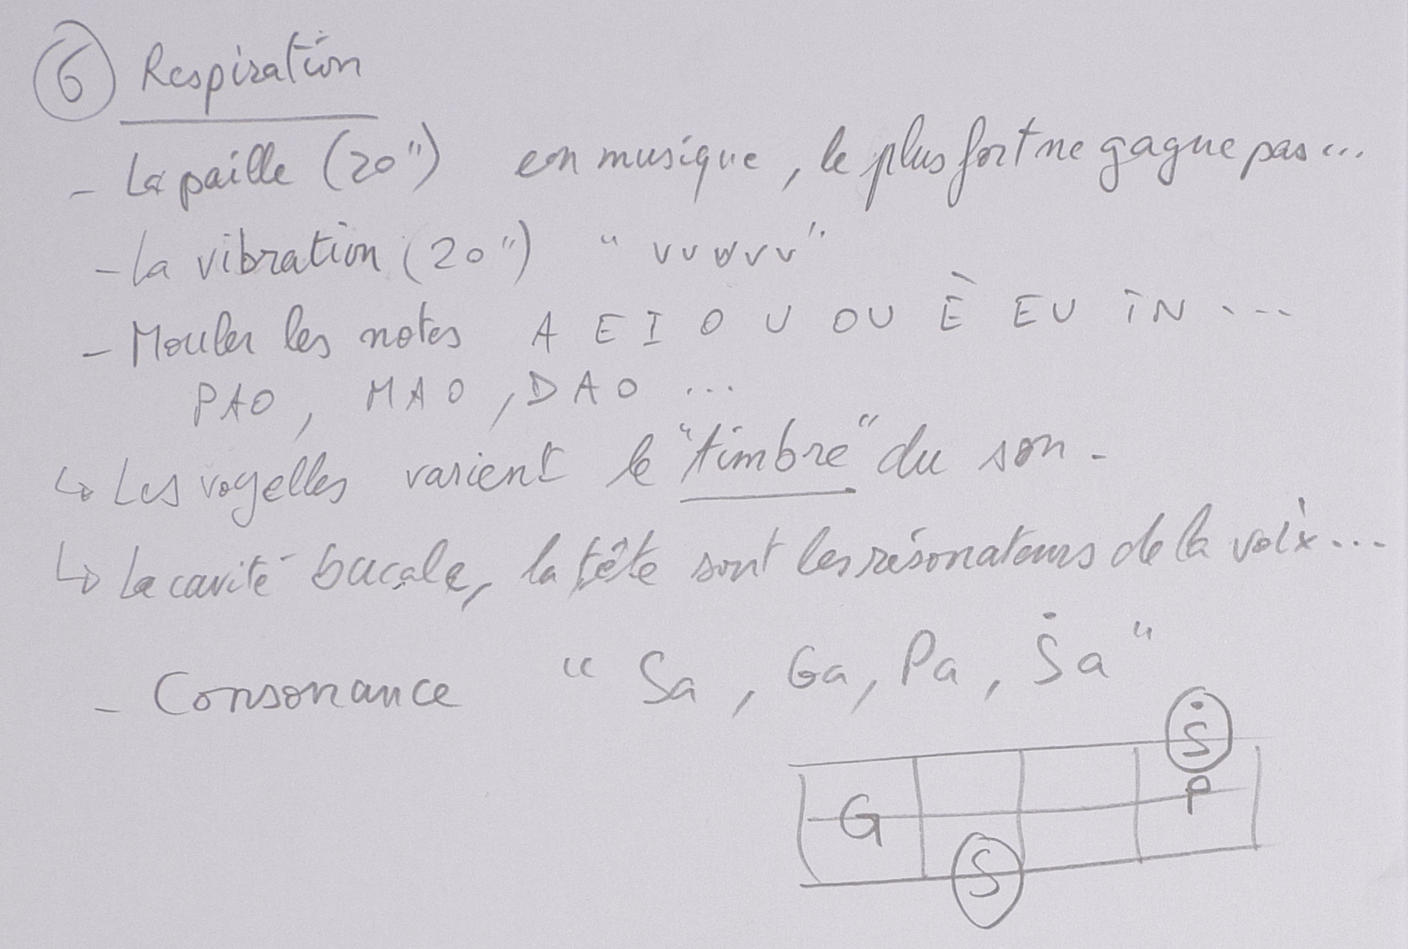 6 Respiration
- La paille (20") en musique, le plus fort ne gagne pas ...
- La vibration (20") " vvvvv "
- Mouler les notes A E I O U OU È EU IN ...
PAO, MAO, DAO ...
↳ Les voyelles varient le "timbre" du son.
↳ La cavité bucale, la tête sont les résonateurs de la voix...
- Consonance " Sa, Ga, Pa, Ṡa "
Ṡ
P
G
S